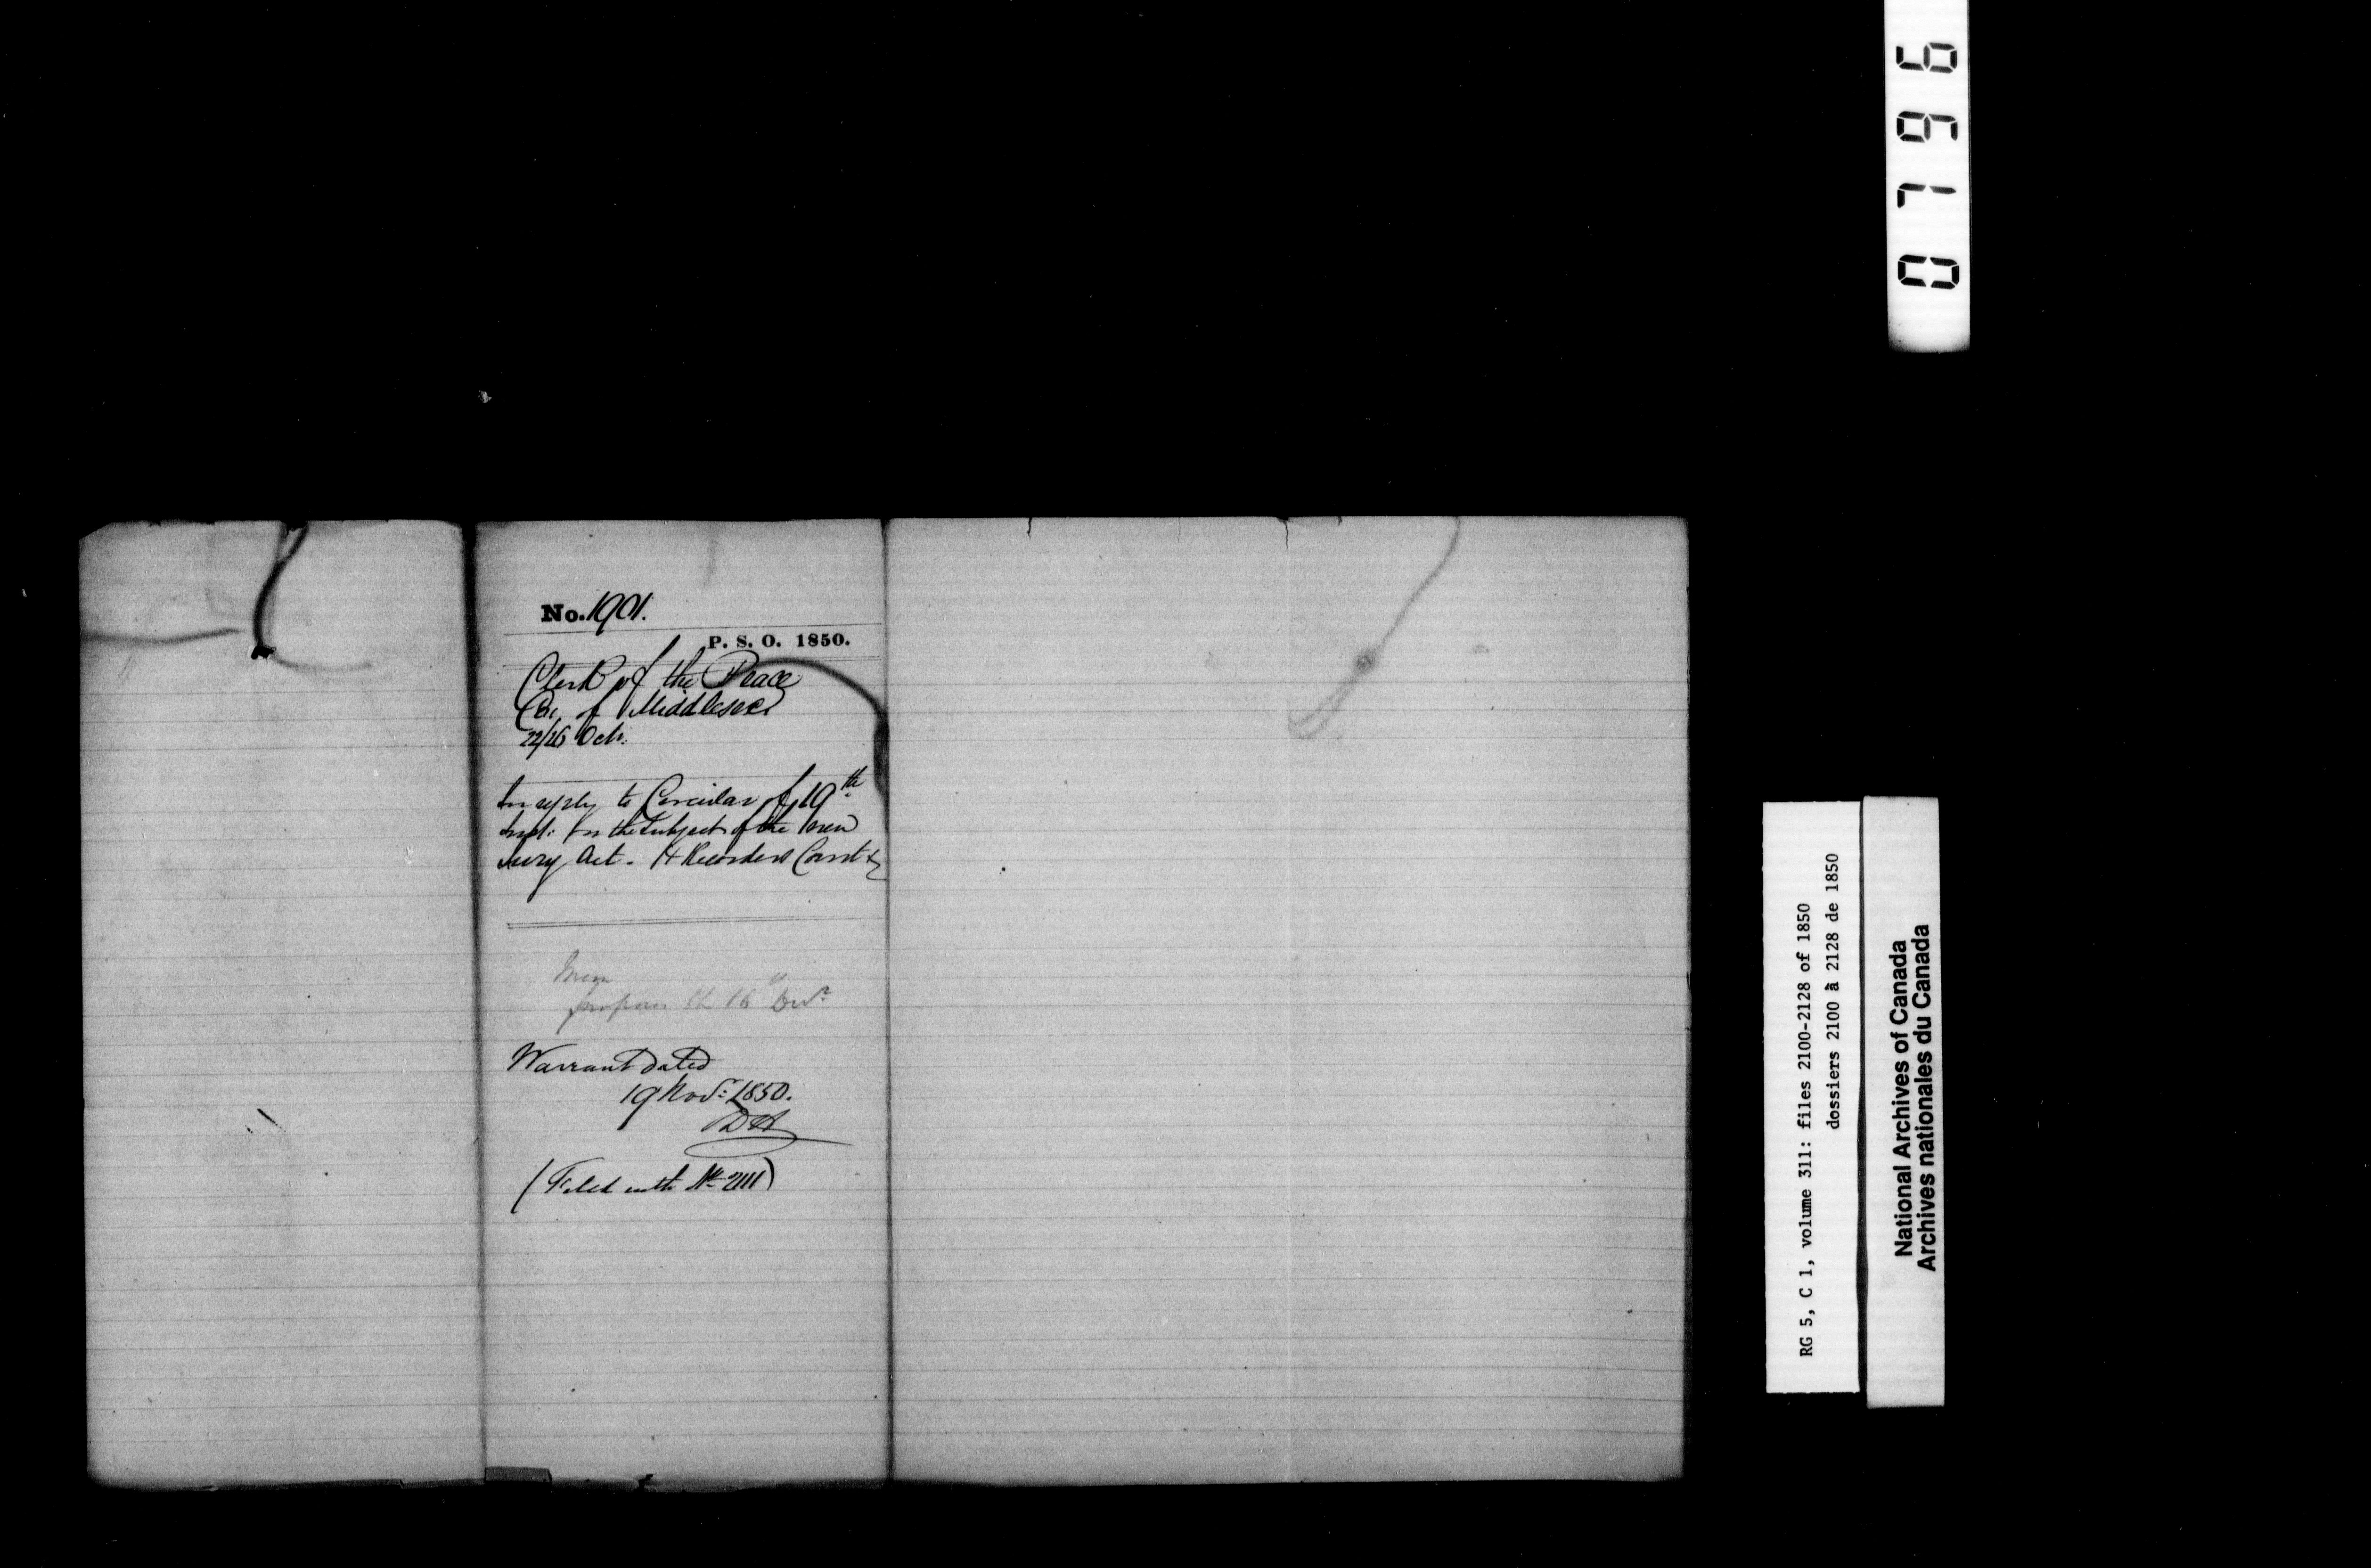 No. 1901.
P. S. O. 1850.
Clerk of the Peace
Co. of Middlesex
22/26 Octr.
In reply to Circular of 19th
inst: on the subject of the new
Jury Act. & Recorders Court &
Mem
16 Dw
Warrant dated
19 Novr: 1850.
(Filed with No 2111)
0796
RG 5, C 1, volume 311: files 2100-2128 of 1850
dossiers 2100 à 2128 de 1850
National Archives of Canada
Archives nationales du Canada